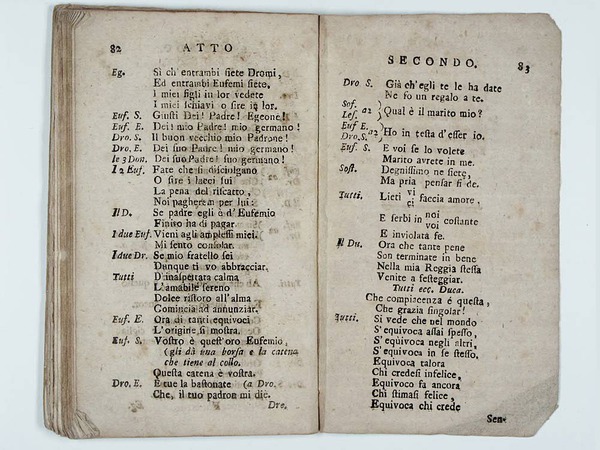 82 ATTO
Eg. Sì ch'entrambi siete Dromj,
Ed entrambi Eufemi siete,
I miei figli in lor vedete
I miei schiavi o sire in lor.
Euf. S. Giusti Dei! Padre! Egeone!
Euf. E. Dei mio Padre! mio germano!
Dro. S. Il buon vecchio mio Padrone!
Dro. E. Dei suo Padre! mio germano!
le 3 Don. Dei suo Padre! suo germano!
I 2 Euf. Fate che si disciolgano
O sire i lacci sui
La pena del riscatto,
Noi pagherem per lui:
Il D. Se padre egli è d'Eufemio
Finiso ha di pagar
I due Euf. Vieni agli amplessi miei.
Mi sento consolar.
I due Dr. Se mio fratello sei
Dunque ti vo abbracciar.
Tutti D'inaspettata calma
L'amabile sereno
Dolce ristoro all'alma
Comincia ad annunziar.
Euf. E. Ora di tanti equivoci
L'origine si mostra.
Euf. S. Vostro è quest'oro Eufemio,
(gli dà una borsa e la catena
che tiene al collo.
Questa catena è vostra.
Dro. E. E tue la bastonate (a Dro.
Che, il tuo padron mi diè.
Dro.
SECONDO. 83
Dro S. Già ch'egli te le ha date
Ne fo un regalo a te.
Sof.
Les. a2 Qual è il marito mio?
Euf E.
Dro. S. a2 Ho in testa d'esser io.
Euf. S. E voi se lo volete
Marito avrete in me.
Sost. Degnissimo ne siete,
Ma pria pensar si de.
Tutti. Lieti vi ci faccia amore,
E serbi in noi voi costante
E inviolata fe.
Il Du. Ora che tante pene
Son terminate in bene
Nella mia Reggia stessa
Venite a festeggiar.
Tutti ecc. Duca.
Che compiacenza è questa,
Che grazia singolar!
Tutti. Si vede che nel mondo
S'equivoca assai spesso,
S'equivoca negli altri,
S'equivoca in se stesso,
Equivoca talora
Chi credesi infelice,
Equivoco fa ancora
Chi stimasi felice,
Equivoca chi crede
Sen-